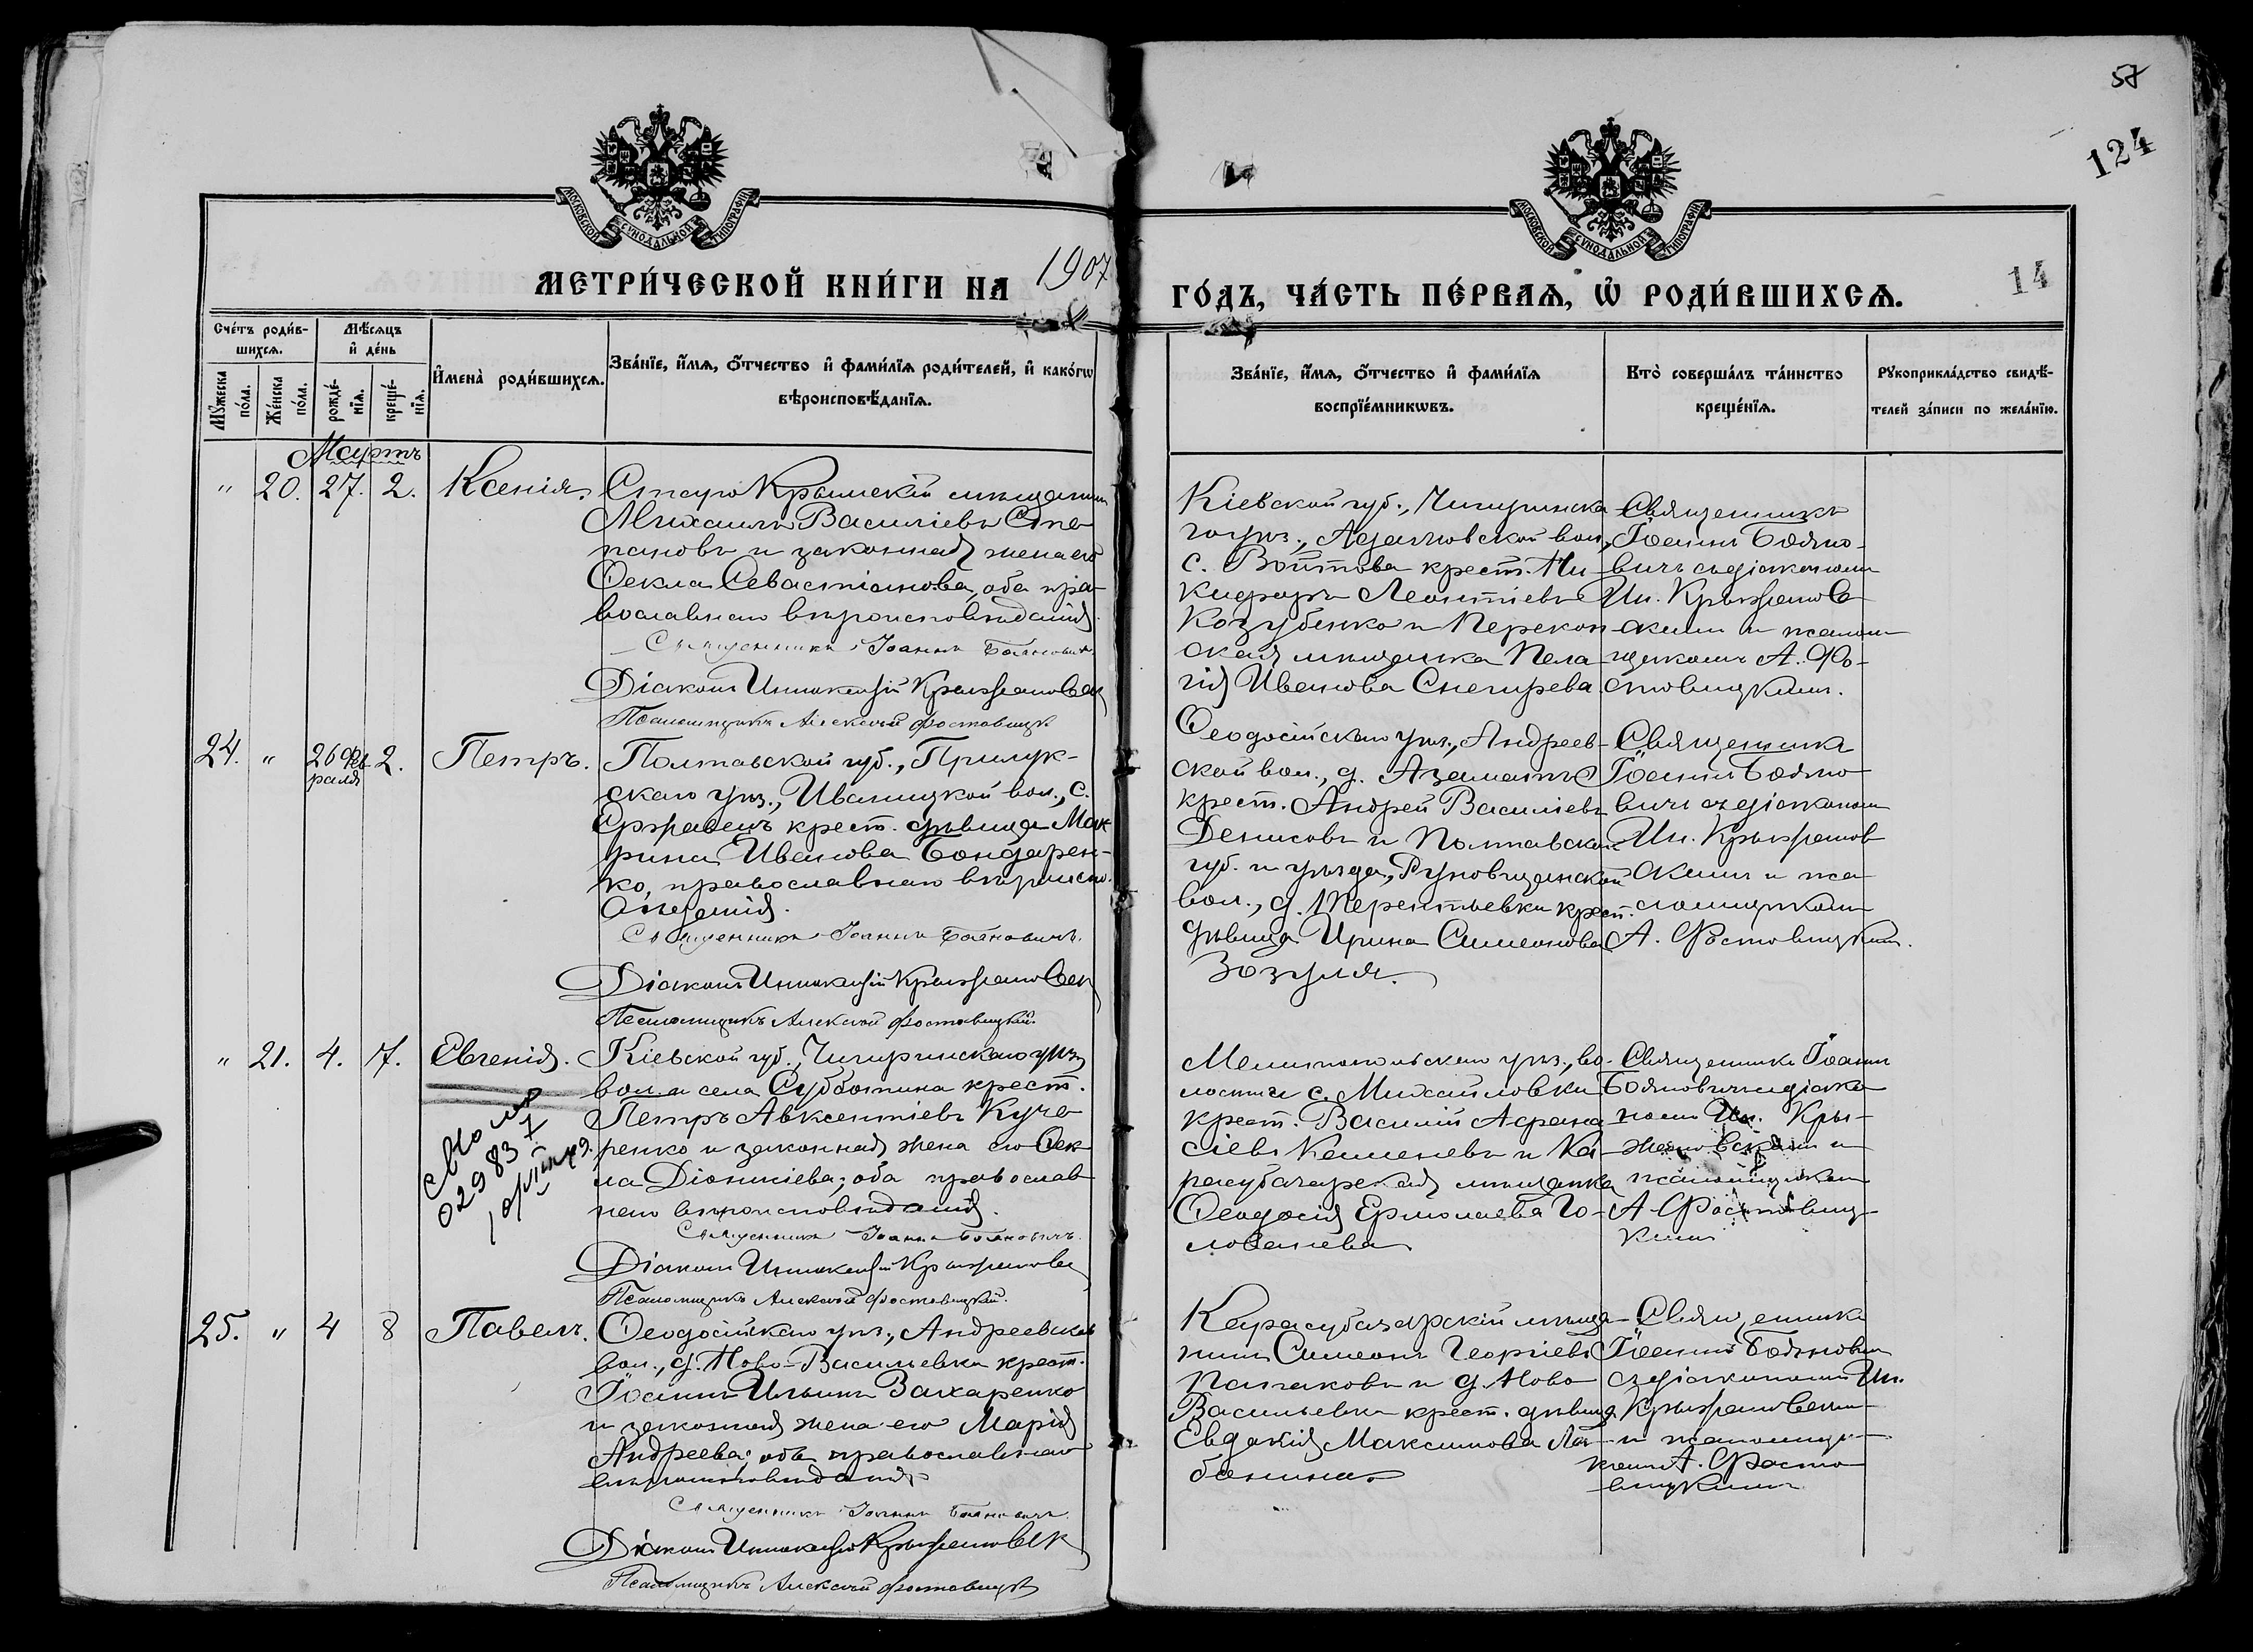 57
124
МОСКОВСКОЙ СѴНОДАЛЬНОЙ ТИПОГРАФІИ
МОСКОВСКОЙ СѴНОДАЛЬНОЙ ТИПОГРАФІИ
МЕТРИ́ЧЕСКОЙ КНИ́ГИ НА 1907
ГО́ДЪ, ЧА́СТЬ ПЕ́РВАѦ, Ѡ҆ РОДИ́ВШИХСѦ.
14
Сче́тъ роди́в-
шихсѧ.
Мѣ́сѧцъ
и҆ де́нь
Мꙋ́жеска
по́ла.
Же́нска
по́ла.
рожде́-
нїѧ.
креще́-
нїѧ.
И҆мена̀ роди́вшихсѧ.
Зва́нїе, и҆́мѧ, ѻ҆́тчество и҆ фами́лїѧ роди́телей, и҆ како́гѡ
вѣроисповѣ́данїѧ.
Зва́нїе, и҆́мѧ, ѻ҆́тчество и҆ фами́лїѧ
воспрїе́мникѡвъ.
Кто̀ соверша́лъ та́инство
креще́нїѧ.
Рꙋкоприкла́дство свидѣ́-
телей за́писи по жела́нїю.
Мартъ
" 20. 27. 2. Ксенія.
Старо Крымскій мѣщанинъ
Михаилъ Василіевъ Сте-
пановъ и законная жена его
Ѳекла Севастіанова, оба пра-
вославнаго вѣроисповѣданія.
Священникъ Іоаннъ Бояновичъ.
Діаконъ Иннокентій Крыжановск
Псаломщикъ Алексѣй Фостовицк
Кіевской губ., Чигиринска-
го уѣз., Адамовской вол.,
с. Войтова крест. Ни-
кифоръ Леонтіевъ
Козубенко и Перекоп-
ская мѣщанка Пела-
гія Иванова Снегирева
Священникъ
Іоаннъ Бояно-
вичъ съ діакономъ
Ин. Крыжанов-
скимъ и псалом-
щикомъ А. Фо-
стовицкимъ.
24. " 26 фев-
раля 2. Петръ.
Полтавской губ., Прилук-
скаго уѣз., Иваницкой вол., с.
Ержавецъ крест. дѣвица Мак-
рина Иванова Бондарен-
ко, православнаго вѣроиспо-
вѣданія.
Священникъ Іоаннъ Бояновичъ.
Діаконъ Иннокентій Крыжановск
Псаломщикъ Алексѣй Фостовицкій.
Ѳеодосійскаго уѣз., Андреев-
ской вол., д. Азаматъ
крест. Андрей Василіевъ
Денисовъ и Полтавской
губ. и уѣзда, Руновщинской
вол., д. Терентьевки крест.
дѣвица Ирина Симеонова
Зозуля.
Священникъ
Іоаннъ Бояно-
вичъ съ діакономъ
Ин. Крыжанов-
скимъ и пса-
ломщикомъ
А. Фостовицкимъ.
" 21. 4. 7. Евгенія.
Кіевской губ., Чигиринскаго уѣз.,
вол. и села Субботина крест.
Петръ Авксентіевъ Куче-
ренко и законная жена его Ѳек-
ла Діонисіева; оба православ-
наго вѣроисповѣданія.
Священникъ Іоаннъ Бояновичъ.
Діаконъ Иннокентій Крыжановск
Псаломщикъ Алексѣй Фостовицкій.
02983
Мелитопольскаго уѣз., во-
лости и с. Михайловки
крест. Василій Аѳана-
сіевъ Каменевъ и Ка-
расубазарская мѣщанка
Ѳеодосія Ермолаева Го-
лованева
Священникъ Іоаннъ
Бояновичъ съ діако-
номъ Ин. Кры-
жановскимъ и
псаломщикомъ
А. Фостовиц-
кимъ
25. " 4 8 Павелъ.
Ѳеодосійскаго уѣз., Андреевской
вол., д. Ново-Васильевки крест.
Іоаннъ Ильинъ Захаренко
и законная жена его Марія
Андреева; оба православнаго
вѣроисповѣданія
Священникъ Іоаннъ Бояновичъ.
Діаконъ Иннокентій Крыжановск
Псаломщикъ Алексѣй Фостовицк
Карасубазарскій мѣща-
нинъ Симеонъ Георгіевъ
Палаковъ и д. Ново-
Васильевки крест. дѣвица
Евдокія Максимова Ла-
банина
Священникъ
Іоаннъ Бояновичъ
съ діакономъ Ин.
Крыжановскимъ
и псаломщи-
комъ А. Фосто-
вицкимъ